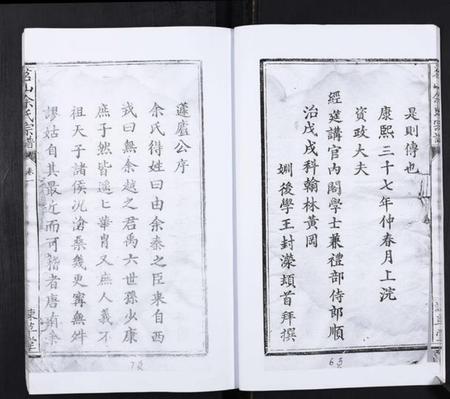 是則傳也
康熙三十七年仲春月上浣
資政大夫
經筵講官內閣學士兼禮部侍郎順
治戊戌科翰林黃岡
姻後學王封濴頓首拜撰
65
蘧廬公序
余氏得姓曰由余秦之臣來自西
戎曰無余越之君禹六世孫少康
庶子然皆遥遥華胄又庶人義不
祖天子諸侯況滄桑幾更寧無舛
謬姑自其最近而可稽者唐有余
茗山余氏宗譜
7